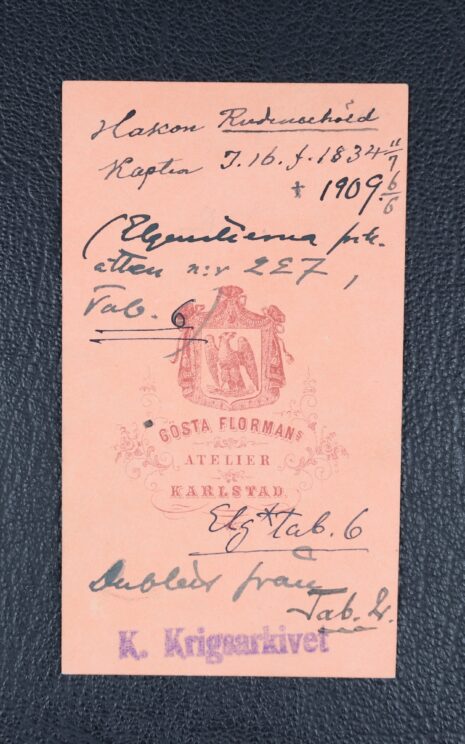 Hakon Rudenschöld
Kapten I.16. f. 1834 11/7
† 1909 6/6
(Elgenstierna frih.
ätten n:r 227,
Tab. 6
GÖSTA FLORMANS
ATELIER
KARLSTAD.
Elg* tab. 6
Dublett från
Tab. 2.
K. Krigsarkivet